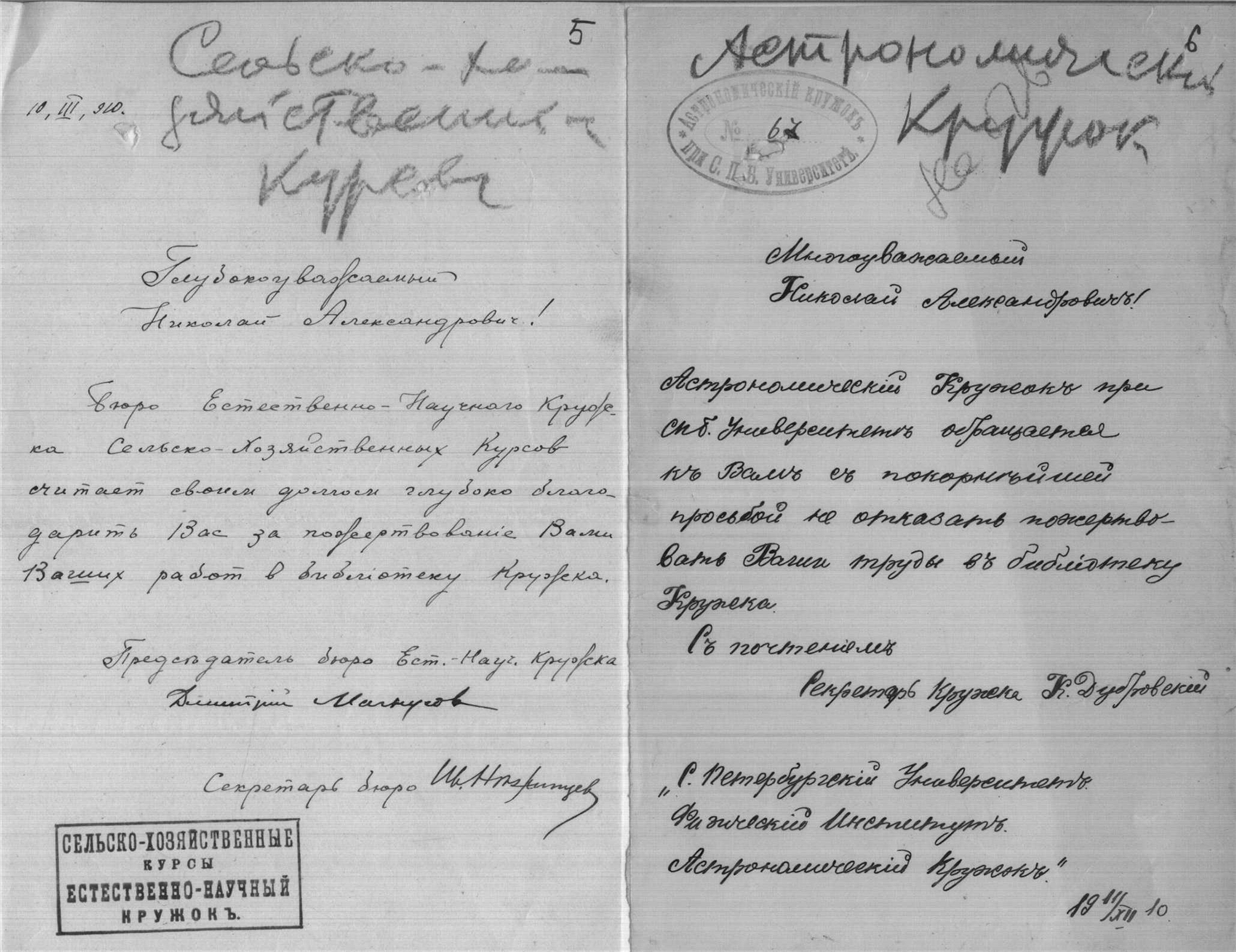 5
Сельско-хо-
зяйственны
Курсы
10, III, 910.
Глубокоуважаемый
Николай Александрович!
Бюро Естественно-Научного Круж-
ка Сельско-Хозяйственных Курсов
считает своим долгом глубоко благо-
дарить Вас за пожертвование Вами
Ваших работ в библіотеку Кружка.
Председатель бюро Ест.-Науч. Кружка
Димитрій
Секретарь бюро Ив.
СЕЛЬСКО-ХОЗЯЙСТВЕННЫЕ
КУРСЫ
ЕСТЕСТВЕННО-НАУЧНЫЙ
КРУЖОКЪ.
6
Астрономически
Кружок
Астрономическій кружокъ
№ 67
при С. П. Б. Университетѣ.
Многоуважаемый
Николай Александровичъ!
Астрономическій Кружокъ при
спб. Университетѣ обращается
къ Вамъ съ покорнѣйшей
просьбой не отказать пожертво-
вать Ваши труды въ библіотеку
Кружка.
Съ почтеніемъ
Секретарь Кружка К. Дубровскій
„С. Петербургскій Университетъ.
Физическій Институтъ.
Астрономическій Кружокъ."
19 11/XII 10.